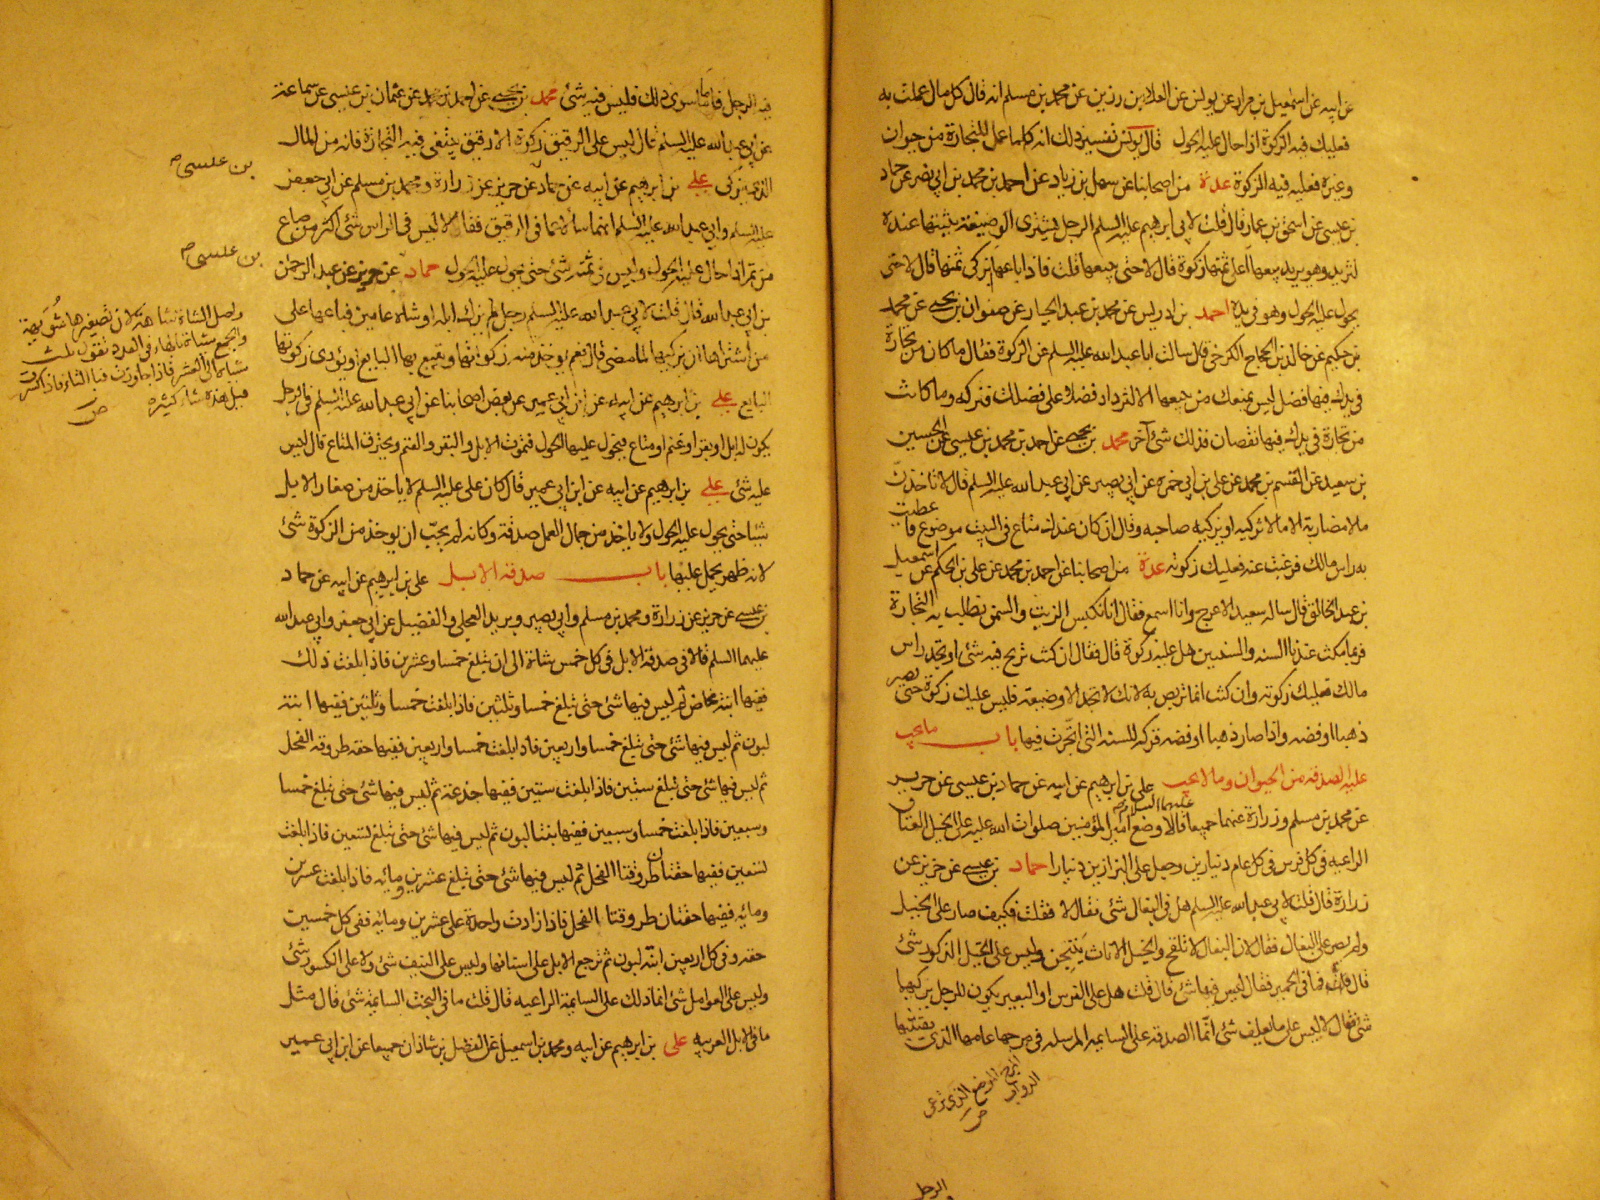 عن ابيه عن اسمعيل بن مرار عن يونس عن العلا بن رزين عن محمد بن مسلم انه قال كل مال عملت به
فعليك فيه الزكوة اذا حال عليه الحول قال يونس تفسير ذلك انه كلما عمل للتجارة من حيوان
وغيره فعليه فيه الزكوة عدة من اصحابنا عن سهل بن زياد عن احمد بن محمد بن ابي نصر عن حماد
بن عيسى عن اسحق بن عمار قال قلت لابي ابرهيم عليه السلم الرجل يشترى الوصيفة يثبتها عنده
لتزيد وهو يريد بيعها اعلى ثمنها زكوة قال لا حتى يبيعها قلت فاذا باعها يزكى ثمنها قال لا حتى
يحول عليه الحول وهو في يده احمد بن ادريس عن محمد بن عبد الجبار عن صفوان بن يحيى عن محمد
بن حكيم عن خالد بن الحجاج الكرخي قال سالت ابا عبد الله عليه السلم عن الزكوة فقال ما كان من تجارة
في يدك فيها فضل ليس يمنعك من بيعها الا لتزداد فضلا على فضلك فزكه وما كانت
من تجارة في يدك فيها نقصان فذلك شئ آخر محمد بن يحيى عن احمد بن محمد بن عيسى عن الحسين
بن سعيد عن القسم بن محمد عن علي بن ابي حمزه عن ابي بصير عن ابي عبد الله عليه السلم قال لا تاخذن
مالا مضاربة الا مالا تزكيه او يزكيه صاحبه وقال ان كان عندك متاع في البيت موضوع فاعطيت
به راس مالك فرغبت عنه فعليك زكوته عدة من اصحابنا عن احمد بن محمد عن علي بن الحكم عن اسمعيل
بن عبد الخالق قال ساله سعيد الاعرج وانا اسمع فقال انا نكبس الزيت والسمن نطلب به التجارة
فربما مكث عندنا السنه والسنتين هل عليه زكوة قال فقال ان كنت تربح فيه شئ او تجد راس
مالك فعليك زكوته وان كنت انما تربص به لانك لا تجد الا وضيعة فليس عليك زكوة حتى يصير
ذهبا او فضه واذا صار ذهبا او فضه فزكه للسنه التى اتجرت فيها باب ما يجب
عليه الصدقه من الحيوان وما لا يجب علي بن ابرهيم عن ابيه عن حماد بن عيسى عن حريز
عن محمد بن مسلم وزرارة عنهما جميعا عليهما السلم قالا وضع امير المؤمنين صلوات الله عليه على الخيل العتاق
الراعيه في كل فرس في كل عام دينارين وجعل على البراذين دينارا حماد بن عيسى عن حريز عن
زرارة قال قلت لابي عبد الله عليه السلم هل في البغال شئ فقال لا فقلت فكيف صار على الخيل
ولم يصر على البغال فقال لان البغال لا تلقح والخيل الاناث ينتجن وليس على الخيل الذكور شئ
قال قلت فما في الحمير فقال ليس فيها شئ قال قلت هل على الفرس او البعير يكون للرجل يركبها
شئ فقال لا ليس على ما يعلف شئ انما الصدقه على السايمه المرسله في مرجها عامها الذي يقتنيها
الرجل
فيه الرجل فاما ما سوى ذلك فليس فيه شئ محمد بن يحيى عن احمد بن محمد عن عثمان بن عيسى عن سماعة
عن ابي عبد الله عليه السلم قال ليس على الرقيق زكوة الا رقيق يبتغى فيه التجارة فانه من المال
الذي يزكى علي بن ابرهيم عن ابيه عن حماد عن حريز عن زرارة ومحمد بن مسلم عن ابي جعفر
عليه السلم وابي عبد الله عليه السلم انهما سئلا عما في الرقيق فقالا ليس في الراس شئ اكثر من صاع
من تمر اذا حال عليه الحول وليس في ثمنه شئ حتى يحول عليه الحول حماد عن حريز عن عبد الرحمن
بن ابي عبد الله قال قلت لابي عبد الله عليه السلم رجل لم يزك ابله او شاه عامين فباعها على
من اشتراها ان يزكيها لما مضى قال نعم يؤخذ منه زكوتها ويتبع بها البايع او يؤدى زكوتها
البايع علي بن ابرهيم عن ابيه عن ابن ابي عمير عن بعض اصحابنا عن ابي عبد الله عليه السلم في الرجل
يكون له ابل او بقر او غنم او متاع فيحول عليها الحول فتموت الابل والبقر والغنم ويحترق المتاع قال ليس
عليه شئ علي بن ابرهيم عن ابيه عن ابن ابي عمير قال كان علي عليه السلم لا ياخذ من صغار الابل
شيئا حتى يحول عليه الحول ولا ياخذ من جمال العمل صدقة وكانه لم يحب ان يوخذ من الزكوة شئ
لانه ظهر يحمل عليها باب صدقه الابل علي بن ابرهيم عن ابيه عن حماد
بن عيسى عن حريز عن زرارة ومحمد بن مسلم وابي بصير وبريد العجلى والفضيل عن ابي جعفر وابي عبد الله
عليهما السلم قالا في صدقه الابل في كل خمس شاة الى ان تبلغ خمسا وعشرين فاذا بلغت ذلك
ففيها ابنة مخاض ثم ليس فيها شئ حتى تبلغ خمسا وثلثين فاذا بلغت خمسا وثلثين ففيها ابنة
لبون ثم ليس فيها شئ حتى تبلغ خمسا واربعين فاذا بلغت خمسا واربعين ففيها حقه طروقه الفحل
ثم ليس فيها شئ حتى تبلغ ستين فاذا بلغت ستين ففيها جذعة ثم ليس فيها شئ حتى تبلغ خمسا
وسبعين فاذا بلغت خمسا وسبعين ففيها بنتا لبون ثم ليس فيها شئ حتى تبلغ تسعين فاذا بلغت
تسعين ففيها حقتان طروقتا الفحل ثم ليس فيها شئ حتى تبلغ عشرين ومائه فاذا بلغت عشرين
ومائه ففيها حقتان طروقتا الفحل فاذا زادت واحدة على عشرين ومائه ففى كل خمسين
حقه وفي كل اربعين ابنة لبون ثم ترجع الابل على اسنانها وليس على النيف شئ ولا على الكسور شئ
وليس على العوامل شئ انما ذلك على السايمة الراعيه قال قلت ما في البخت السايمة شئ قال مثل
ما في الابل العربيه علي بن ابرهيم عن ابيه ومحمد بن اسمعيل عن الفضل بن شاذان جميعا عن ابن ابي عمير
بن عيسى
بن عيسى
واصل الشاة شاهة لان تصغيرها شويهة